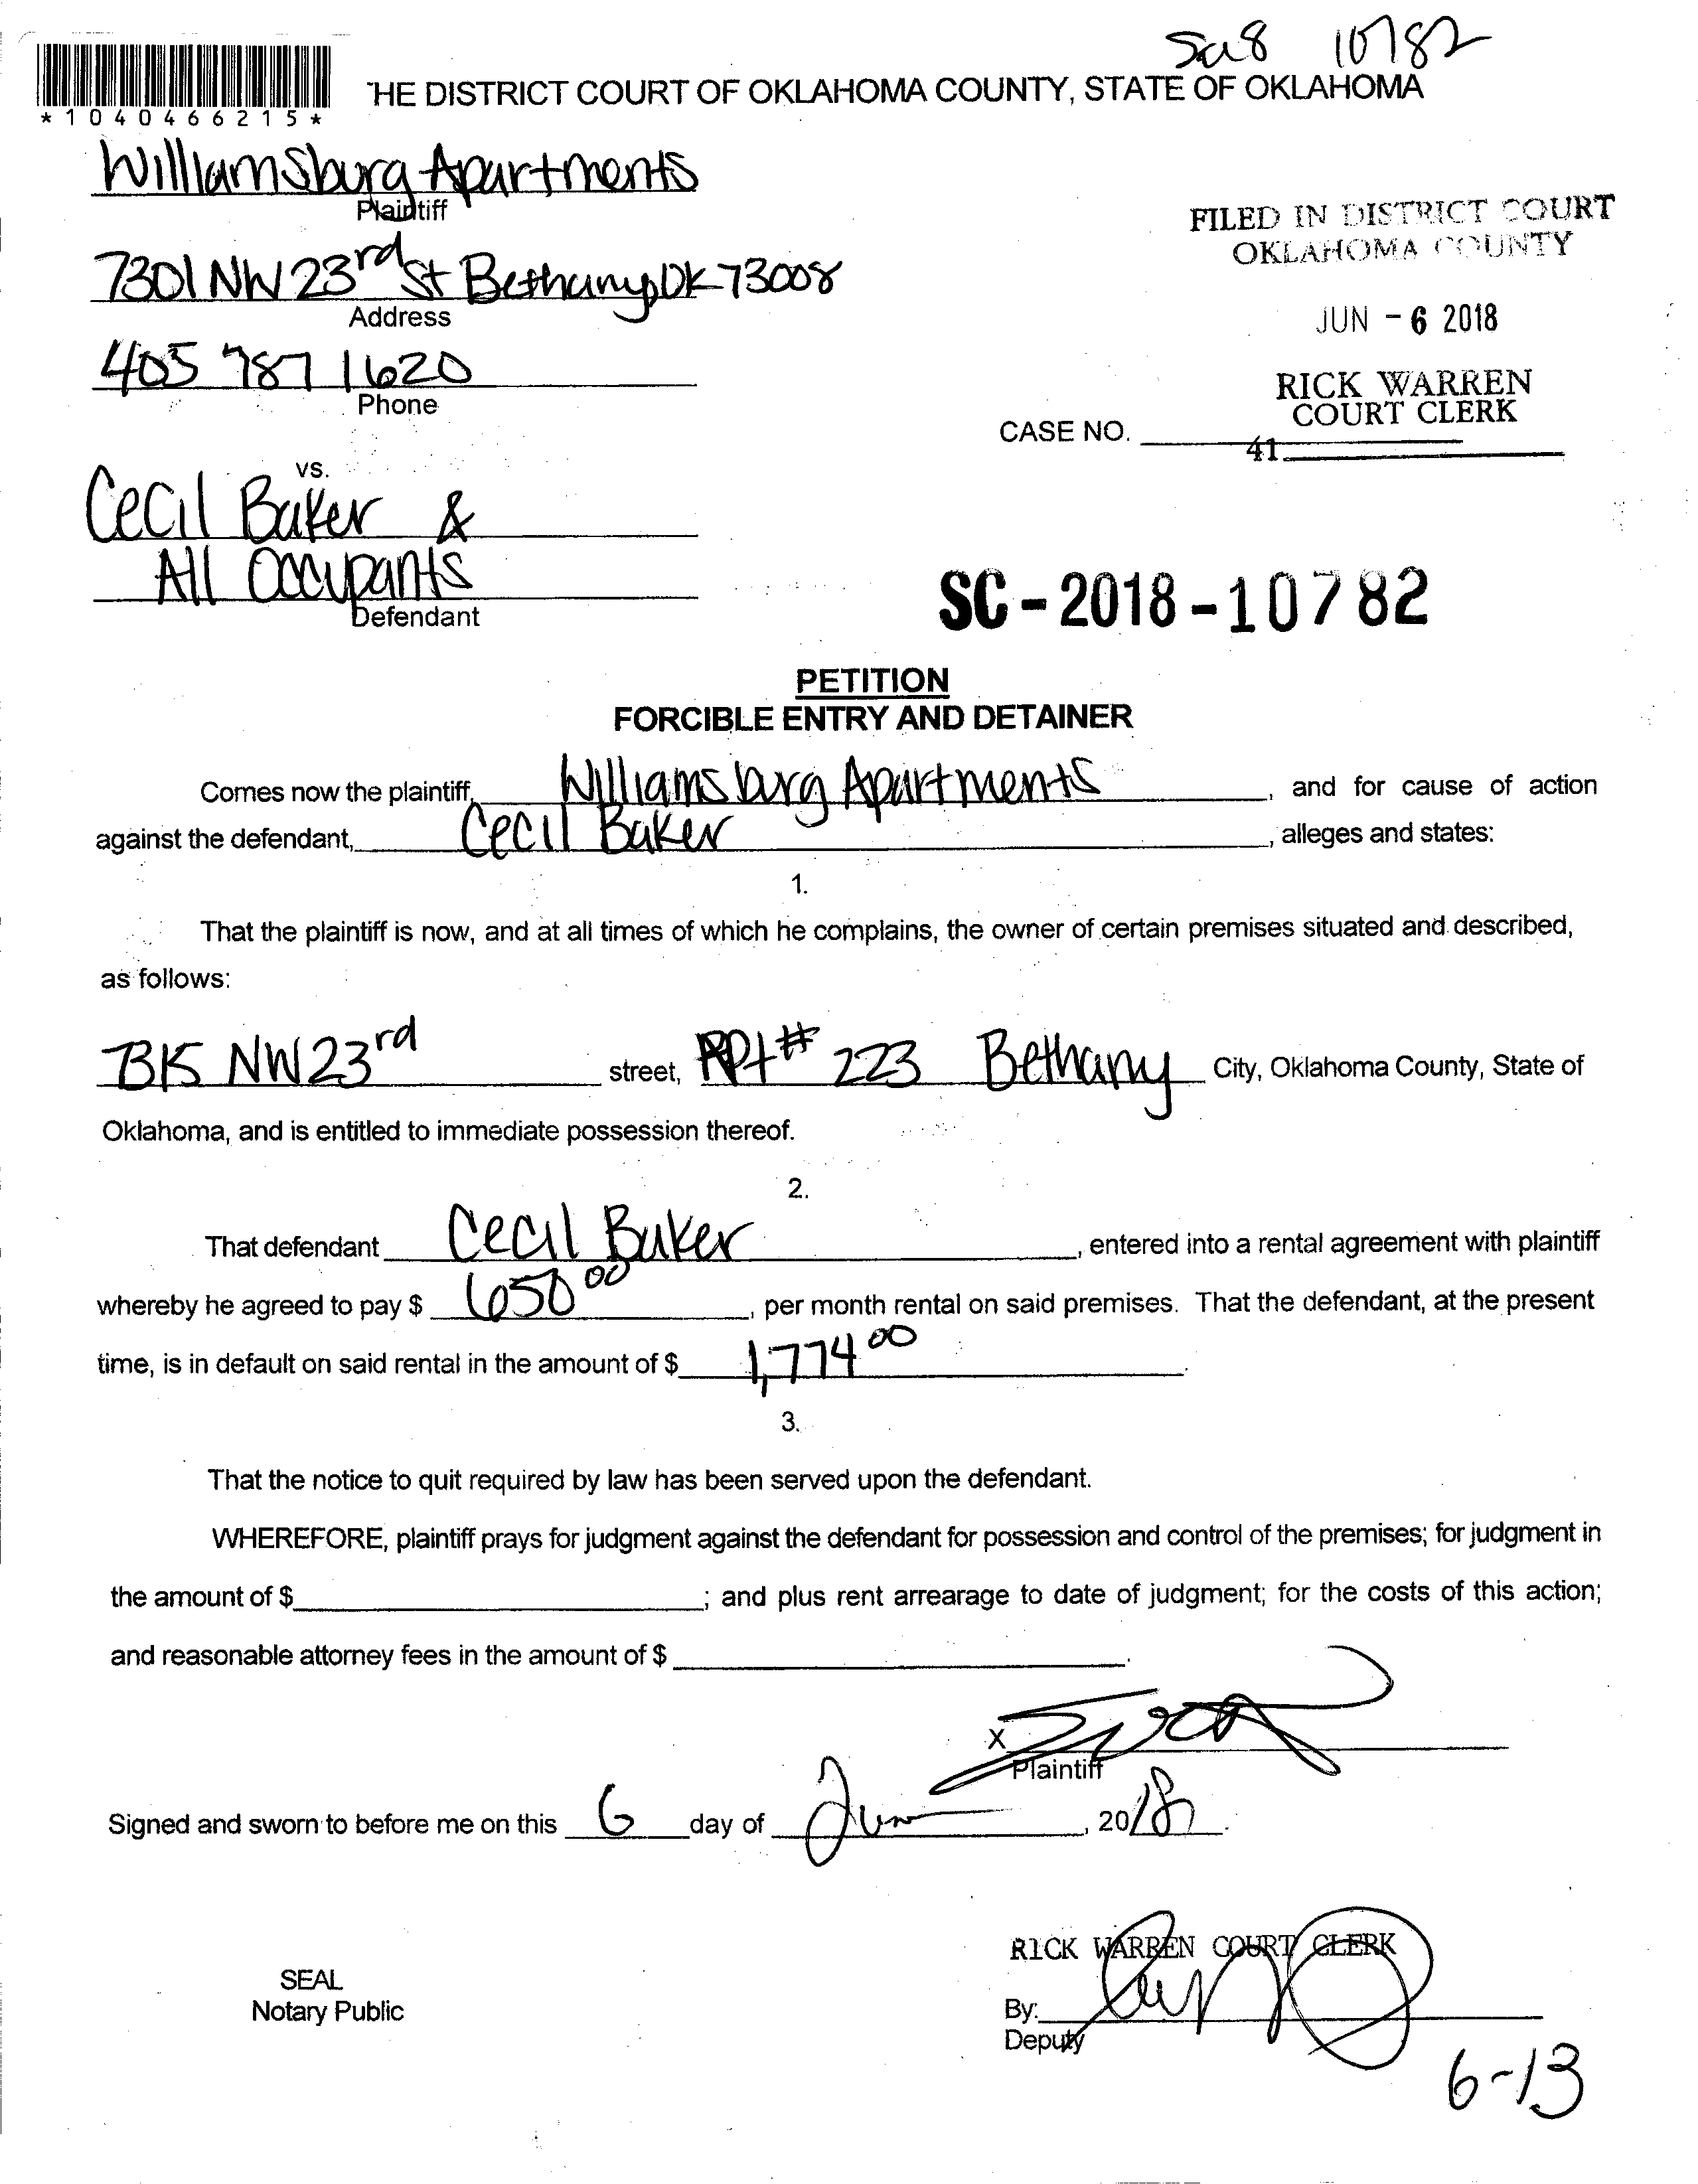 10782
*1040466215*
THE DISTRICT COURT OF OKLAHOMA COUNTY, STATE OF OKLAHOMA
Williamsburg Apartments
Plaintiff
FILED IN DISTRICT COURT
OKLAHOMA COUNTY
7301 NW 23rd St Bethany, OK 73008
Address
JUN - 6 2018
405 787 1620
Phone
RICK WARREN
COURT CLERK
CASE NO.
41
vs.
Cecil Baker &
All Occupants
Defendant
SC - 2018 - 10782
PETITION
FORCIBLE ENTRY AND DETAINER
Comes now the plaintiff, Williamsburg Apartments, and for cause of action
against the defendant, Cecil Baker, alleges and states:
1.
That the plaintiff is now, and at all times of which he complains, the owner of certain premises situated and described,
as follows:
NW 23rd street, Apt # 223 Bethany City, Oklahoma County, State of
Oklahoma, and is entitled to immediate possession thereof.
2.
That defendant Cecil Baker, entered into a rental agreement with plaintiff
whereby he agreed to pay $ 650 00, per month rental on said premises. That the defendant, at the present
time, is in default on said rental in the amount of $ 1,774 00.
3.
That the notice to quit required by law has been served upon the defendant.
WHEREFORE, plaintiff prays for judgment against the defendant for possession and control of the premises; for judgment in
the amount of $ ; and plus rent arrearage to date of judgment; for the costs of this action;
and reasonable attorney fees in the amount of $ .
X
Plaintiff
Signed and sworn to before me on this 6 day of June, 2018.
RICK WARREN COURT CLERK
SEAL
Notary Public
By:
Deputy
6-13